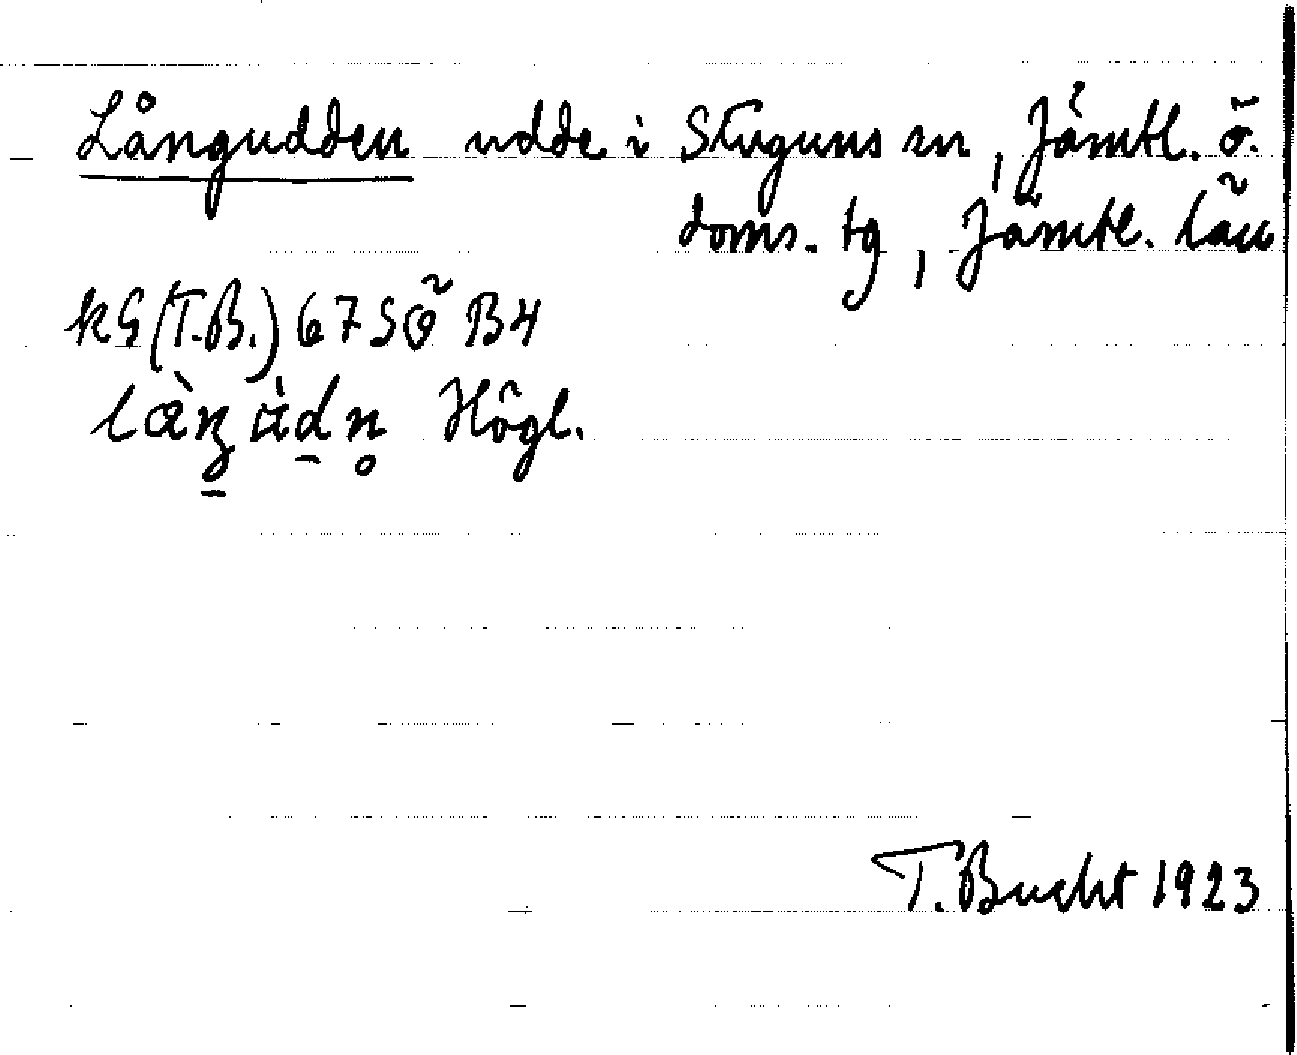 Långudden udde i Stuguns sn, Jämtl. ö.
doms. tg, Jämtl. län
KG (T.B.) 67 SÖ B4
Högl.
T. Bucht 1923